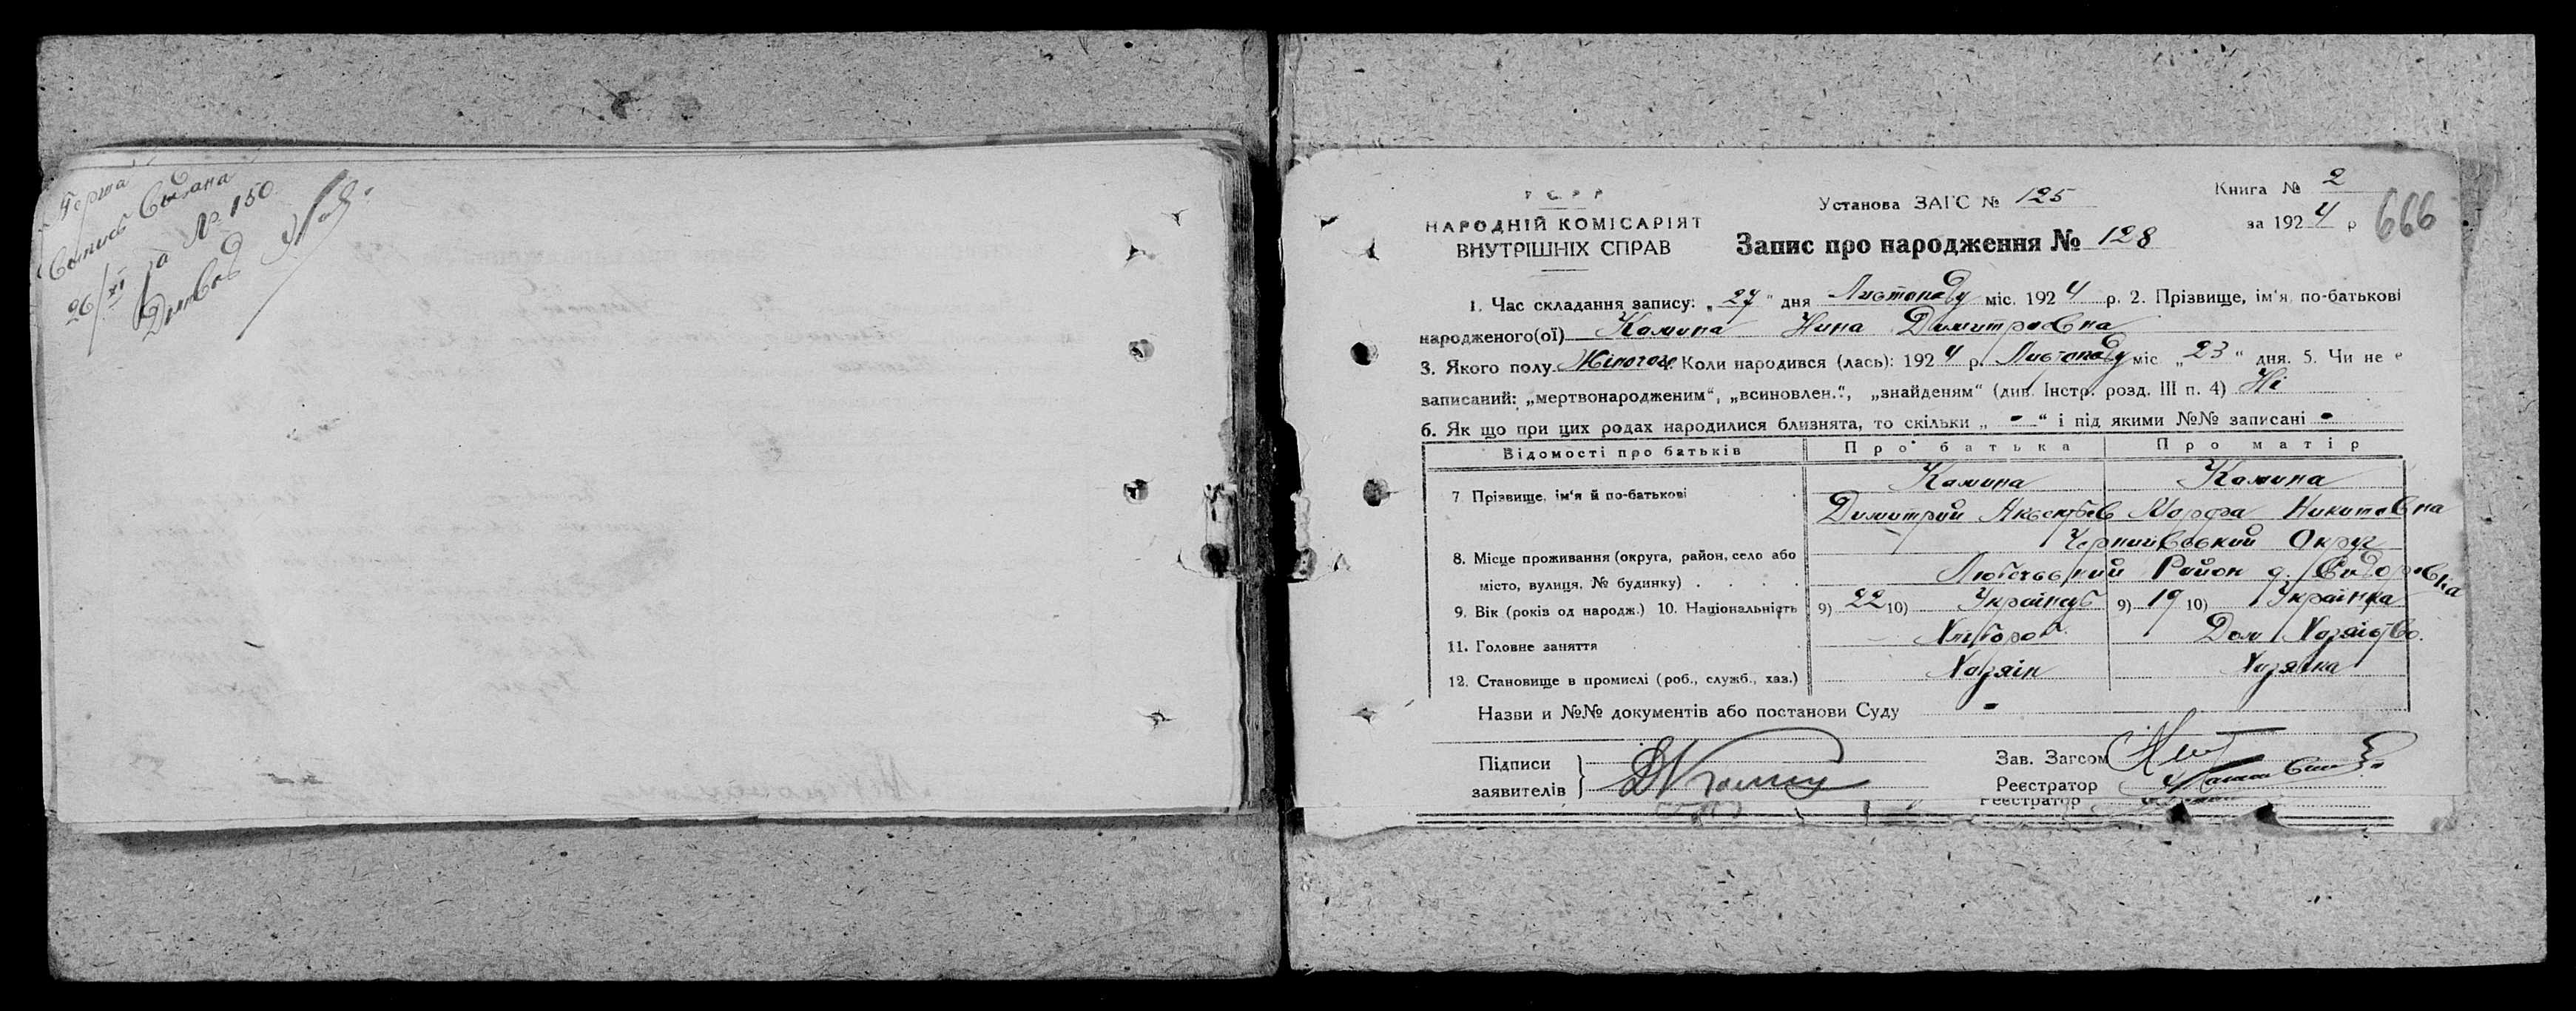 Перша
Выпись Выдана
26/XI за № 150.
Діловод
У С Р Р
НАРОДНІЙ КОМІСАРІЯТ
ВНУТРІШНІХ СПРАВ
Установа ЗАГС № 125
Книга № 2
за 1924 р
666
Запис про народження № 128
1. Час складання запису: „27“ дня Листопаду міс. 1924 р. 2. Прізвище, ім'я, по-батькові
народженого(ої) Камина Нина Димитровна
3. Якого полу Жіночого 4. Коли народився (лась): 1924 р. Листопаду міс „23“ дня. 5. Чи не є
записаний: „мертвонародженим“, „всиновлен.“, „знайденям“ (див. Інстр. розд. III п. 4) Ні
6. Як що при цих родах народилися близнята, то скільки „-“ і під якими №№ записані -
Відомості про батьків Про батька Про матір
7 Прізвище, ім'я й по-батькові Камина Камина
Димитрий Марфа Никитовна
8. Місце проживання (округа, район, село або Чернигівський Округ
місто, вулиця, № будинку) Любечський Район д. Сидоровка
9. Вік (років од народж.) 10. Національність 9) 22 10) Українець 9) 19 10) Українка
11. Головне заняття Хлібороб. Дом Хазяйство.
12. Становище в промислі (роб., служб., хаз.) Хазяін Хазяйка
Назви и №№ документів або постанови Суду -
Підписи
заявителів
Зав. Загсом
Реєстратор
Реєстратор